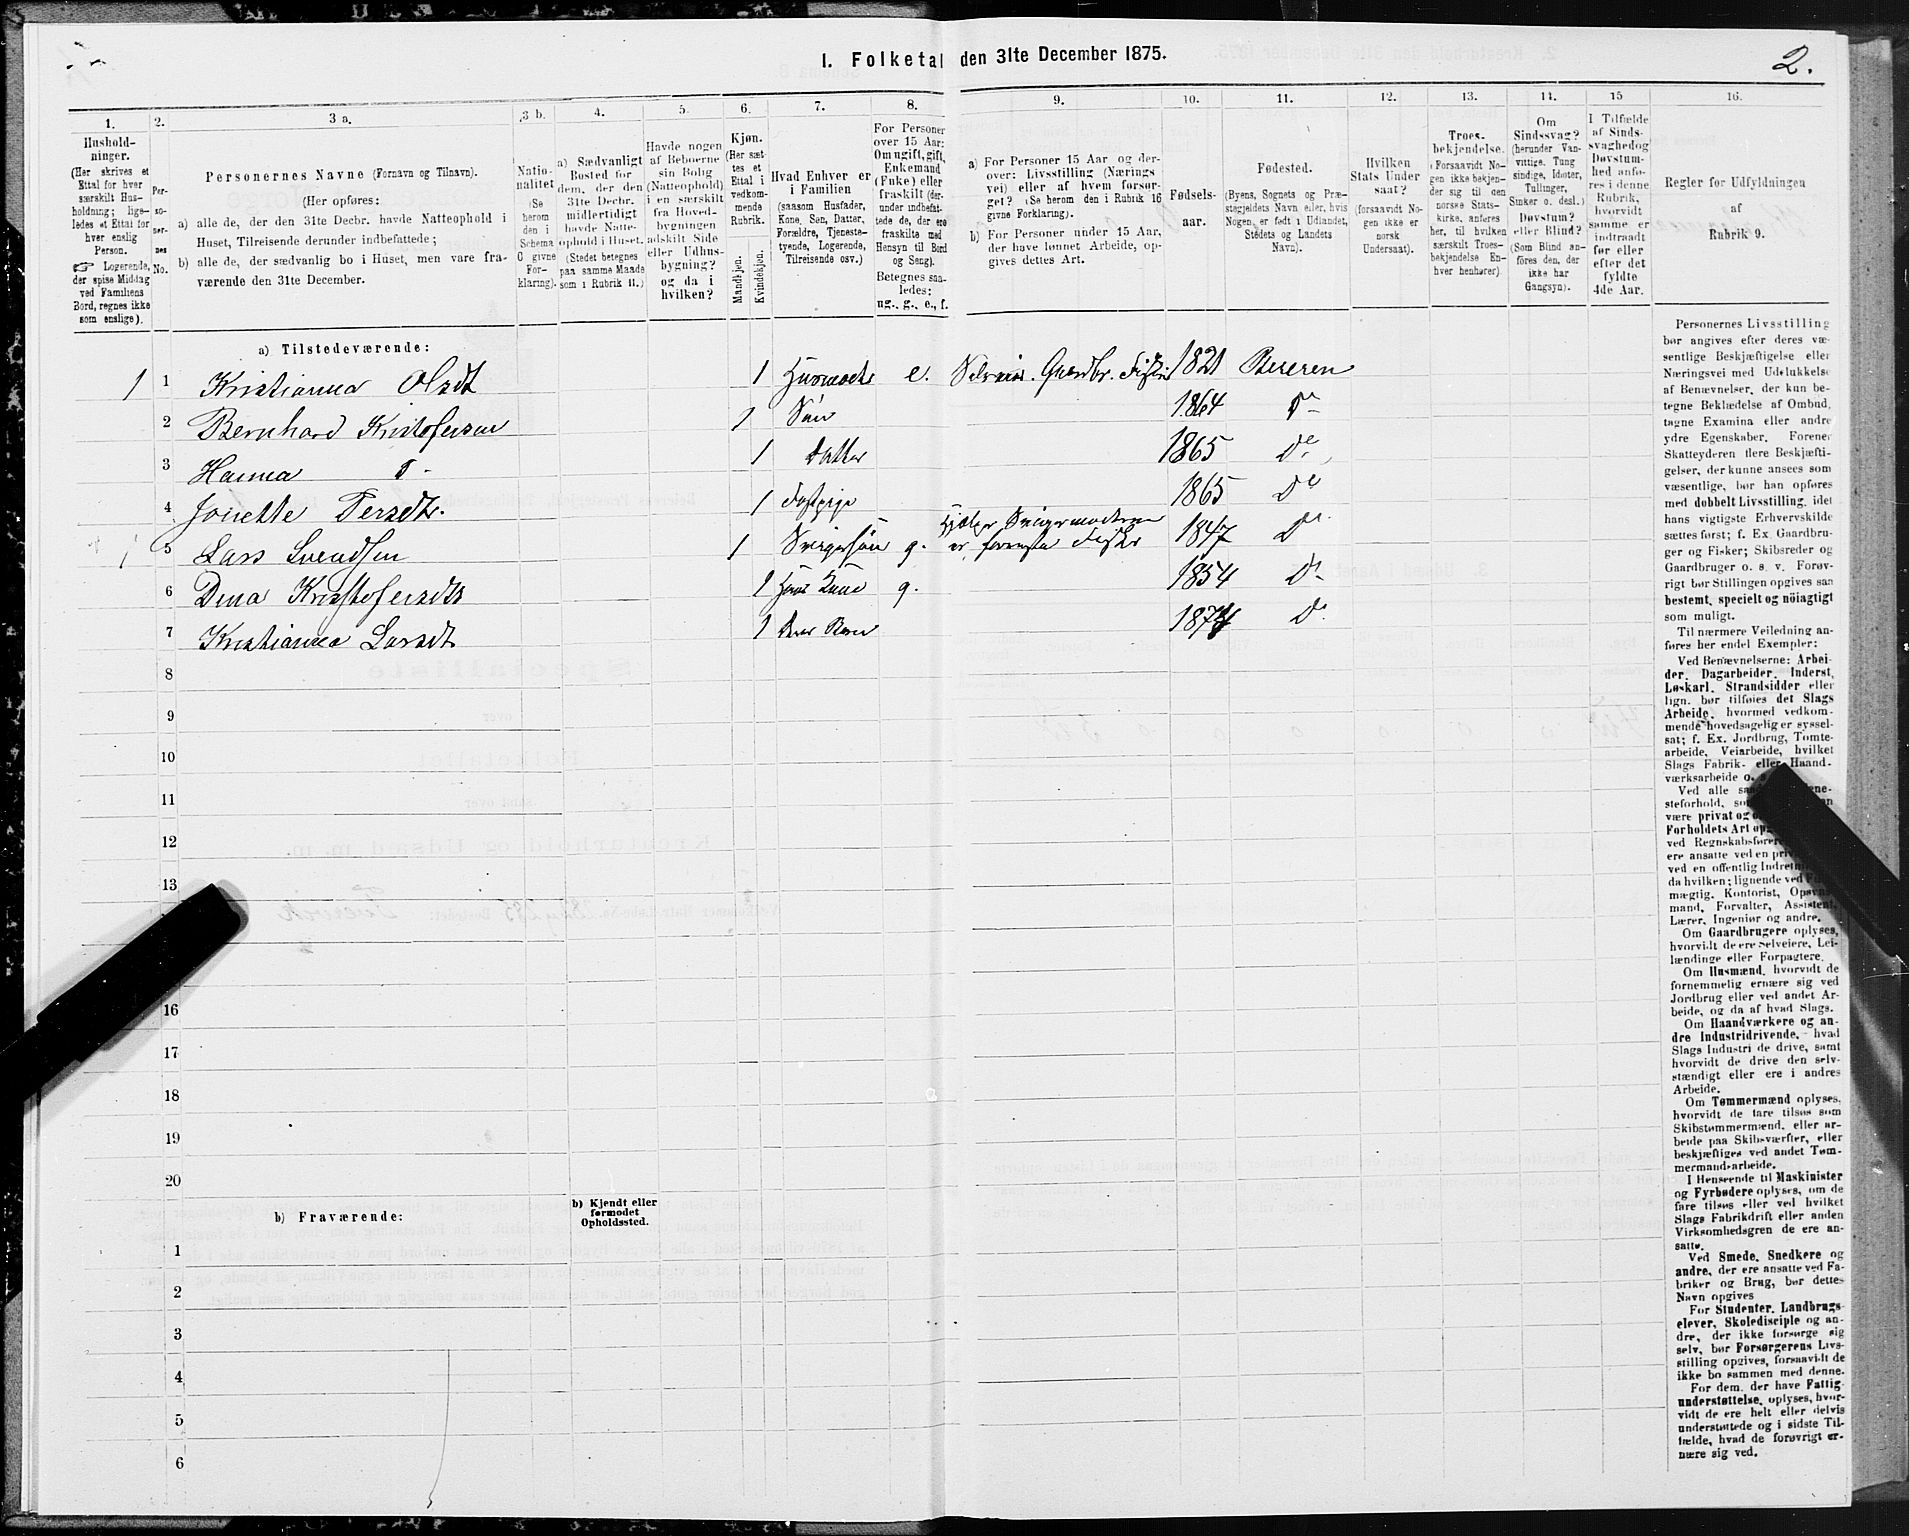 I. Folketal den 31te December 1875.
2.
1.
Hushold-
ninger.
(Her skrives et
Ettal for hver
særskilt Hus-
holdning; lige-
ledes et Ettal for
hver enslig
Person.
☞ Logerende,
der spise Middag
ved Familiens
Bord, regnes ikke
som enslige).
2.
Per-
so-
ner-
nes
No.
3 a.
Personernes Navne (Fornavn og Tilnavn).
(Her opføres:
a) alle de, der den 31te Decbr. havde Natteophold i
Huset, Tilreisende derunder indbefattede;
b) alle de, der sædvanlig bo i Huset, men vare fra-
værende den 31te December.
3 b.
Natio-
nalitet
(Se
herom
den i
Schema
C givne
For-
klaring).
4.
a) Sædvanligt
Bosted for
dem, der den
31te Decbr.
midlertidigt
havde Natte-
ophold i Huset.
(Stedet betegnes
paa samme Maade
som i Rubrik 11.)
5.
Havde nogen
af Beboerne
sin Bolig
(Natteophold)
i en særskilt
fra Hoved-
bygningen
adskilt Side
eller Udhus-
bygning?
og da i
hvilken?
6.
Kjøn.
(Her sæt-
tes et
Ettal i
vedkom-
mende
Rubrik.
Mandkjøn.
Kvindekjøn.
7.
Hvad Enhver er
i Familien
(saasom Husfader,
Kone, Søn, Datter,
Forældre, Tjeneste-
tyende, Logerende,
Tilreisende osv.)
8.
For Personer
over 15 Aar:
Om ugift, gift,
Enkemand
(Enke) eller
fraskilt (der-
under indbefat-
tede de, der ere
fraskilte med
Hensyn til Bord
og Seng).
Betegnes saa-
ledes:
ug., g., e., f.
9.
a) For Personer 15 Aar og der-
over: Livsstilling (Nærings
vei) eller af hvem forsør-
get? (Se herom den i Rubrik 16
givne Forklaring).
b) For Personer under 15 Aar,
der have lønnet Arbeide, op-
gives dettes Art.
10.
Fødsels-
aar.
11.
Fødested.
(Byens, Sognets og Præ-
stegjeldets Navn eller, hvis
Nogen er født i Udlandet,
Stedets og Landets
Navn).
12.
Hvilken
Stats Under
saat?
(forsaavidt No-
gen ikke er
norsk
Undersaat).
13.
Troes-
bekjendelse.
(Forsaavidt No-
gen ikke bekjen-
der sig til den
norske Stats-
kirke, anføres
her, til hvilken
særskilt Troes-
bekjendelse En-
hver henhører)
14.
Om
Sindssvag?
(herunder Van-
vittige, Tung
sindige, Idioter,
Tullinger,
Sinker o. desl.)
Døvstum?
eller Blind?
(Som Blind an-
føres den, der
ikke har
Gangsyn).
15
I Tilfælde
af Sinds-
svaghed og
Døvstum-
hed anfø-
res i denne
Rubrik,
hvorvidt
samme er
indtraadt
før eller
efter det
fyldte
4de Aar.
16.
Regler for Udfyldningen
af
Rubrik 9.
a) Tilstedeværende:
1 1 Kristianna Olsdt 1 Husmoder e. Selveier. Gaardbr. Fisker 1821
2 Bernhard Kristofersen 1 Søn 1864 Do
3 Hanna D. 1 Datter 1865 Do
4 Jonette Persdtr. 1 1865 Do
Hjælper Svigermoderen
5 Lars Svendsen 1 Svigersøn g. Fisker 1847 Do
6 Dina Kristofersdt 1 Hans Kone g. 1854 Do
7 Kristianna Larsdt 1 Deres Barn 1874 Do
8
9
10
11
12
13
16
17
18
19
20
b) Fraværende:
b) Kjendt eller
formodet
Opholdssted.
1
2
3
4
5
6
Personernes Livsstilling
bør angives efter deres væ-
sentlige Beskjæftigelse eller
Næringsvei med Udelukkelse
af Benævnelser, der kun be-
tegne Beklædelse af Ombud,
tagne Examina eller andre
ydre Egenskaber. Forener
Skatteyderen flere Beskjæfti-
gelser, der kunne ansees som
væsentlige, bør han opføres
med dobbelt Livsstilling, idet
hans vigtigste Erhvervskilde
sættes først; f. Ex. Gaardbru-
ger og Fisker; Skibsreder og
Gaardbruger o. s. v. Forøv-
rigt bør Stillingen opgives saa
bestemt, specielt og nöiagtigt
som muligt.
Til nærmere Veiledning an-
føres her endel Exempler:
Ved Benævnelserne: Arbei-
der, Dagarbeider, Inderst,
Løskarl, Strandsidder eller
lign. bør tilføies det Slags
Arbeide, hvormed vedkom-
mende hovedsagelig er syssel-
sat; f. Ex. Jordbrug, Tomte-
arbeide, Veiarbeide, hvilket
Slags Fabrik- eller Haand-
værksarbeide
Ved alle
steforhold,
være privat og
Forholdets Art
ved Regnskabsfører
ere ansatte ved en
ved en offentlig
da hvilken; lignende ved
mægtig, Kontorist,
mand, Forvalter, Assistent,
Lærer, Ingeniør og andre.
Om Gaardbrugere oplyses,
hvorvidt de ere Selveiere, Lei-
lændinge eller Forpagtere.
Om Husmænd, hvorvidt de
fornemmelig ernære sig ved
Jordbrug eller ved andet Ar-
beide, og da af hvad Slags.
Om Haandværkere og an-
dre Industridrivende, hvad
Slags Industri de drive, samt
hvorvidt de drive den selv-
stændigt eller ere i andres
Arbeide.
Om Tømmermænd oplyses,
hvorvidt de fare tilsøs som
Skibstømmermænd, eller ar-
beide paa Skibsværfter, eller
beskjæftiges ved andet Tøm-
mermandsarbeide.
I Henseende til Maskinister
og Fyrbødere oplyses, om de
fare tilsøs eller ved hvilket
Slags Fabrikdrift eller anden
Virksomhedsgren de ere an-
satte.
Ved Smede, Snedkere og
andre, der ere ansatte ved Fa-
briker og Brug, bør dettes
Navn opgives
For Studenter, Landbrugs-
elever, Skoledisciple og an-
dre, der ikke forsørge sig
selv, bør Forsørgerens Livs-
stilling opgives, forsaavidt de
ikke bo sammen med denne.
For dem, der have Fattig-
understøttelse, oplyses, hvor-
vidt de ere helt eller delvis
understøttede og i sidste Til-
fælde, hvad de forøvrigt er-
nære sig ved.